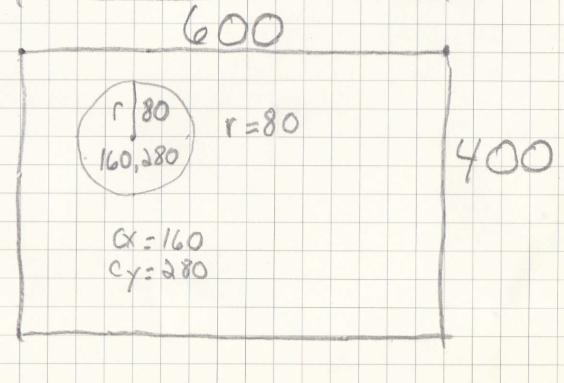 600
r 80
r=80
160,280
400
cx=160
cy=280